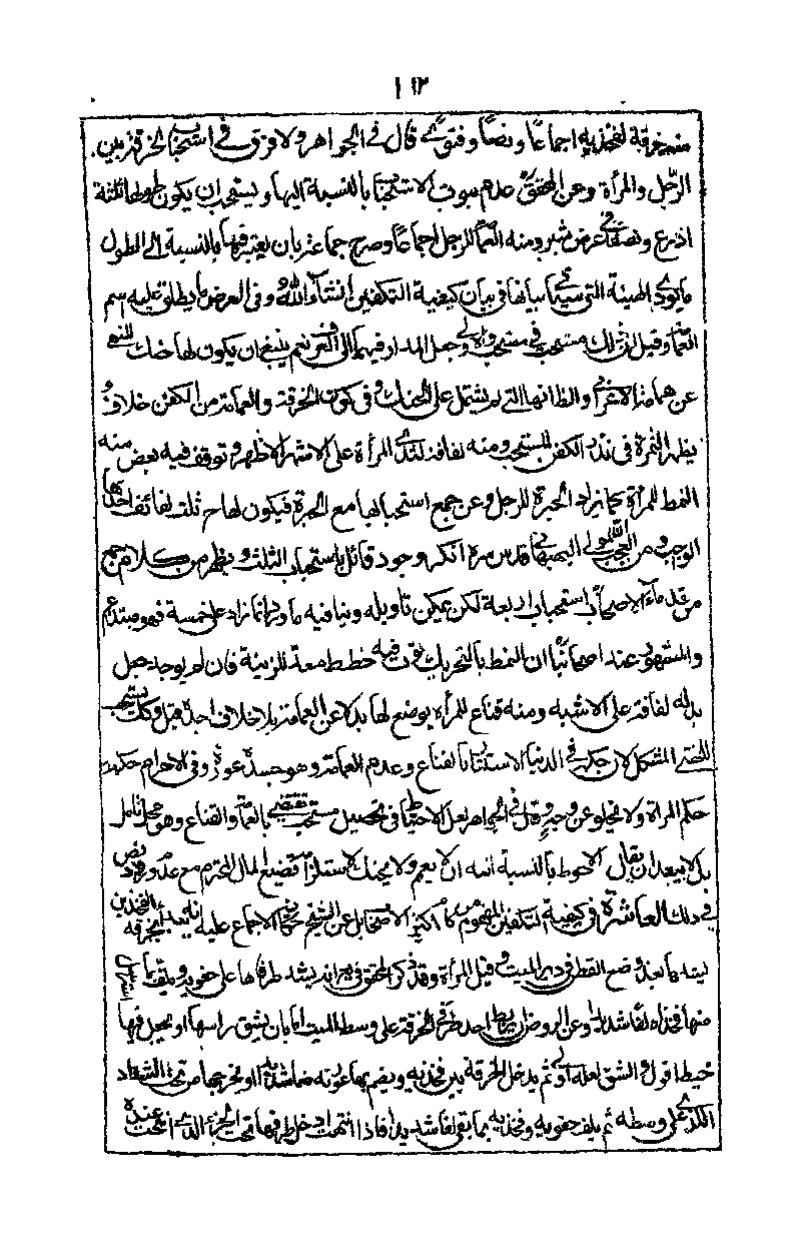 ١١٢
منه خرقة لفخذيه اجماعًا ونصًا وفتوى قال في الجواهر ولا فرق في استحباب الخرقة بين
الرجل والمرأة وعن المحقق عدم ثبوت الاستحباب بالنسبة اليها ويستحب ان يكون طولها ثلثة
اذرع ونصفا في عرض شبر ومنه العمامة للرجل اجماعًا وصرح جماعة بان يعتبر فيها بالنسبة الى الطول
ما يؤدى الهيئة التي سيأتي بيانها في بيان كيفية التكفين إنشاء الله وفي العرض ما يطلق عليه اسم
العمامة وقيل مستحب في مستحب وجعل المدار فيهما الى العرف نعم ينبغي ان يكون لها حنك للنهي
عن عمامة الاعرابي والظ انها التي لم يشتمل على الحنك وفي كون الخرقة والعمامة من الكفن خلاف
يظهر الثمرة في نذر الكفن المستحب ومنه لفافة لثدي المرأة على الاشهر الاظهر وتوقف فيه بعض ومنه
النمط للمرأة كما يزاد الحبرة للرجل وعن جمع استحبابها مع الحبرة فيكون لها ح ثلث لفائف احدها
الواجب ومن العجب البهبهاني قدس سره انكر وجود قائل باستحباب الثلث ويظهر من كلام جمع
من قدماء الاصحاب استحباب اربعة لكن يمكن تاويله وينافيه ما ورد انما زاد على خمسة فهو مبتدع
والمشهور عند اصحابنا ان النمط بالتحريك ثوب فيه خطط معدة للزينة فان لم يوجد جعل
بدله لفافة على الاشبه ومنه قناع للمرأة يوضع لها بدلا عن العمامة بلا خلاف اجده قيل وكك يستحب
للخنثى المشكل لان جسدها في الدنيا الاستتار بالقناع وعدم العمامة وهو جسده عورة وفي الاحرام حكمه
حكم المرأة ولا يخلو عن وجه وقال في الجواهر لعل الاحتياط في تحصيل مستحب يقتضي بالعمامة والقناع وهو محل تامل
بل لا يبعد ان يقال الاحوط بالنسبة اليه ان لا يعمم ولا يحنك لاستلزامه تضييع المال المحترم مع عدم ورود نص
في ذلك العاشرة في كيفية التكفين المفهوم من كلام اكثر الاصحاب بل عن الشيخ حكاية الاجماع عليه انه يبدء بخرقة الفخذين
فيشدها بعد وضع القطن في دبر الميت وقبل المرأة وقد ذكر المحقق في انه يشد طرفاها على حقويه ويلف بما استرسل
منها فخذاه لفا شديدا وعن الروض ان يربط احد طرفي الخرقة على وسط الميت اما بان يشق راسها او يجعل فيها
خيطا اقول والشق لعله اولى ثم يدخل الخرقة بين فخذيه ويضم بها عورته ضما شديدا ويخرجها من تحت الشداد
الذي على وسطه ثم يلف حقويه وفخذيه بما بقي لفا شديدا فاذا انتهت ادخل طرفها تحت الجزء الذي انتهت عنده